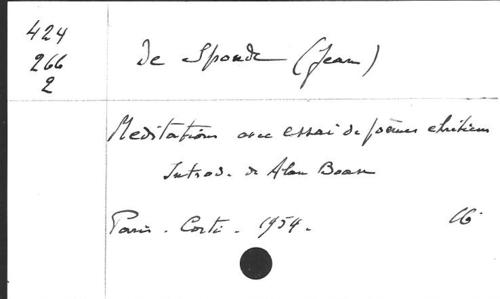 424
266
2
De Sponde (Jean)
Meditations avec essai de poèmes chrétiens
Introd. de Alan Boase
Paris - Corti - 1954 -
16.